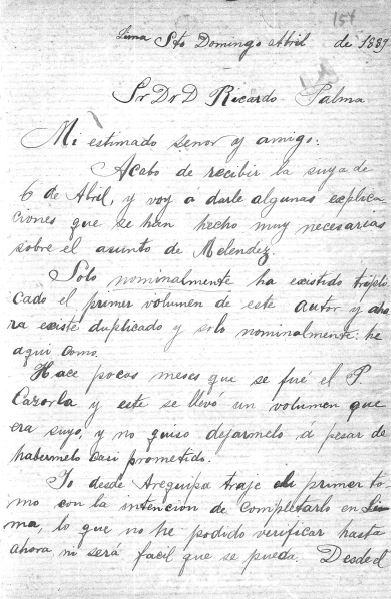 154
Lima Sto Domingo Abril de 1889
Sr Dr D Ricardo Palma
Mi estimado senor y amigo:
Acabo de recibir la suya de
6 de Abril, y voy á darle algunas explica
ciones que se han hecho muy necesarias
sobre el asunto de Melendez.
Sólo nominalmente ha existido tripli
cado el primer volumen de este autor y aho
ra existe duplicado y solo nominalmente: he
aqui como.
Hace pocos meses que se fué el P.
Cazorla y este se llevó un volumen que
era suyo, y no quiso dejarmelo á pesar de
habermelo casi prometido.
Yo desde Arequipa traje el primer to
mo con la intencion de completarlo en Li
ma, lo que no he podido verificar hasta
ahora ni será facil que se pueda. Desde el